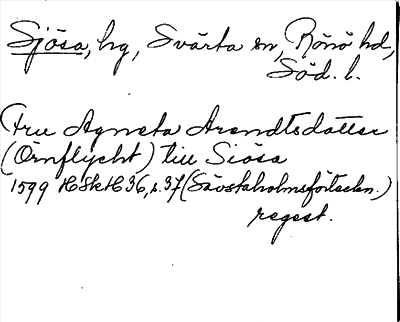 Sjösa, hg, Svärta sn, Rönö hd,
Söd. l.
Fru Agneta Arendtsdotter
(Örnflycht) till Siösa
1599 HSkH 36, s. 37 (Sävstaholmsförteckn.)
regest.